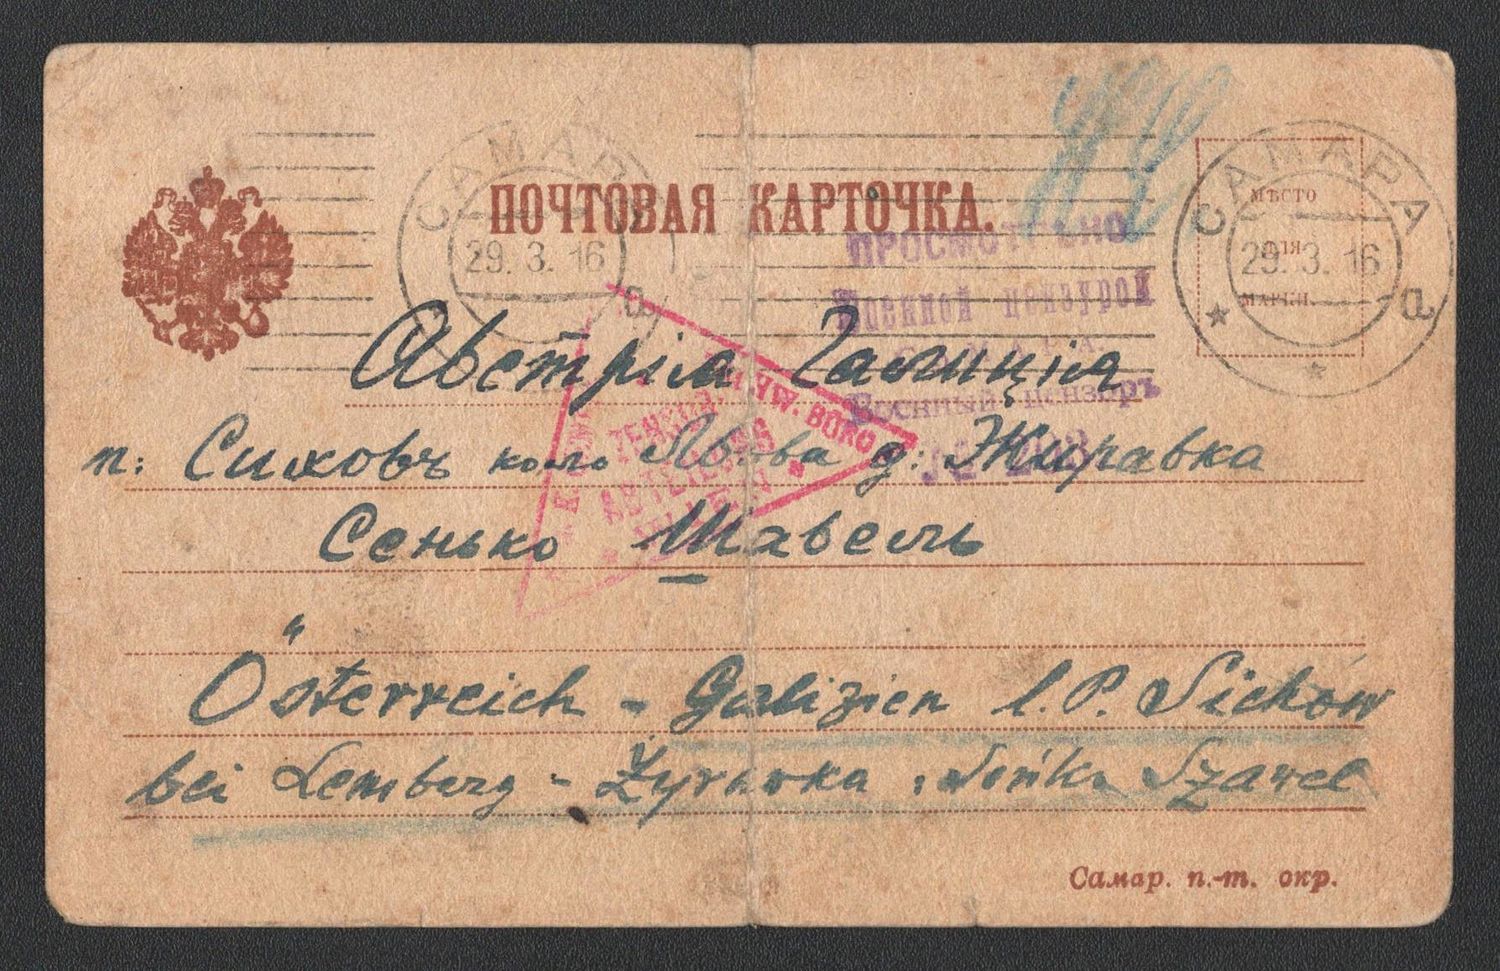 ПОЧТОВАЯ КАРТОЧКА.
САМАРА
29. 3. 16
а
САМАРА
29. 3. 16
а
МѢСТО
ДЛЯ
МАРКИ.
ПРОСМОТРѢНО
Военной цензурой
САМАРА.
Военный цензоръ
Австрія Галиція
п: Сиховъ коло Львова д: Жиравка
Сенько Шавель
Österreich - Galizien l. P. Sichów
bei Lemberg - Żyrawka, Seńko Szawel
Самар. п.-т. окр.